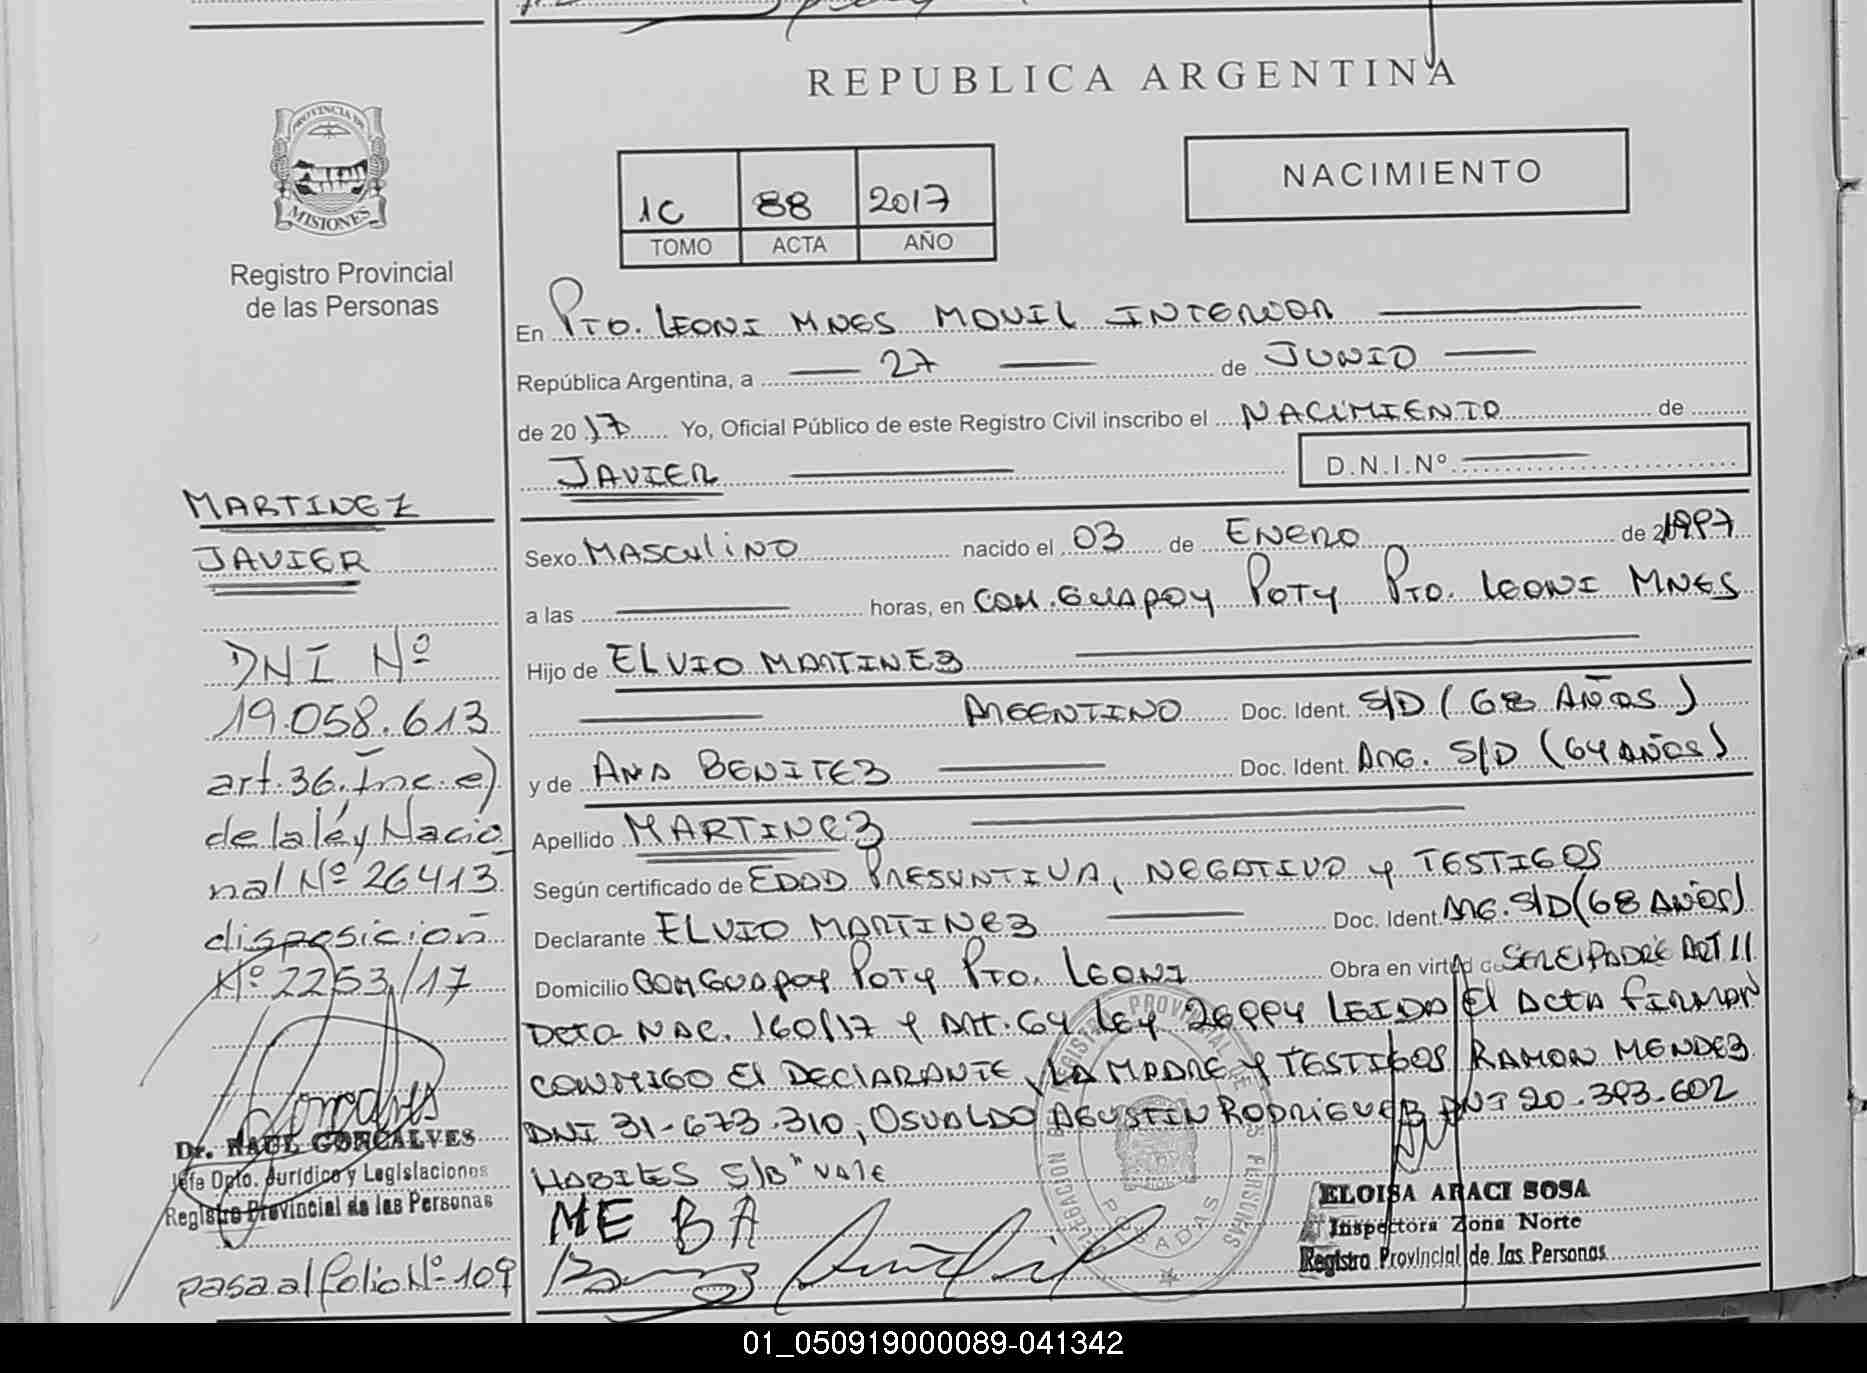 REPUBLICA ARGENTINA
PROVINCIA DE
MISIONES
Registro Provincial
de las Personas
NACIMIENTO
1C 88 2017
TOMO ACTA AÑO
En Pto. LEONI MNES MOVIL INTERIOR
República Argentina, a 27 de JUNIO
de 2017 Yo, Oficial Público de este Registro Civil inscribo el NACIMIENTO de
JAVIER D.N.I.Nº
Sexo MASCULINO nacido el 03 de ENERO de 1997
a las horas, en COM. GUAPOY POTY PTO. LEONI MNES
Hijo de ELVIO MARTINEZ
ARGENTINO Doc. Ident. S/D (68 AÑOS)
y de ANA BENITEZ Doc. Ident. ARG. S/D (64 AÑOS)
Apellido MARTINEZ
Según certificado de EDAD PRESUNTIVA, NEGATIVO y TESTIGOS
Declarante ELVIO MARTINEZ Doc. Ident. ARG. S/D (68 AÑOS)
Domicilio COM GUAPOY POTY PTO. LEONI Obra en virtud de SER EL PADRE ART 11
DETO NAC. 160/17 y ART. 64 LEY 26994 LEIDA El ACTA FIRMAN
CONMIGO El DECLARANTE, LA MADRE Y TESTIGOS RAMON MENDEZ
DNI 31-673.310, OSVALDO AGUSTIN RODRIGUEZ DNI 20.393.602
HABILES S/B" VALE
ME BA
ELOISA ARACI SOSA
Inspectora Zona Norte
Registro Provincial de las Personas
MARTINEZ
JAVIER
DNI Nº
19.058.613
art. 36. Inc. e)
de la ley Nacio
nal Nº 26413
disposicion
Nº 2253/17
Dr. RAUL GONCALVES
Jefe Dpto. Jurídico y Legislaciones
Registro Provincial de las Personas
pasa al folio Nº 109
01_050919000089-041342